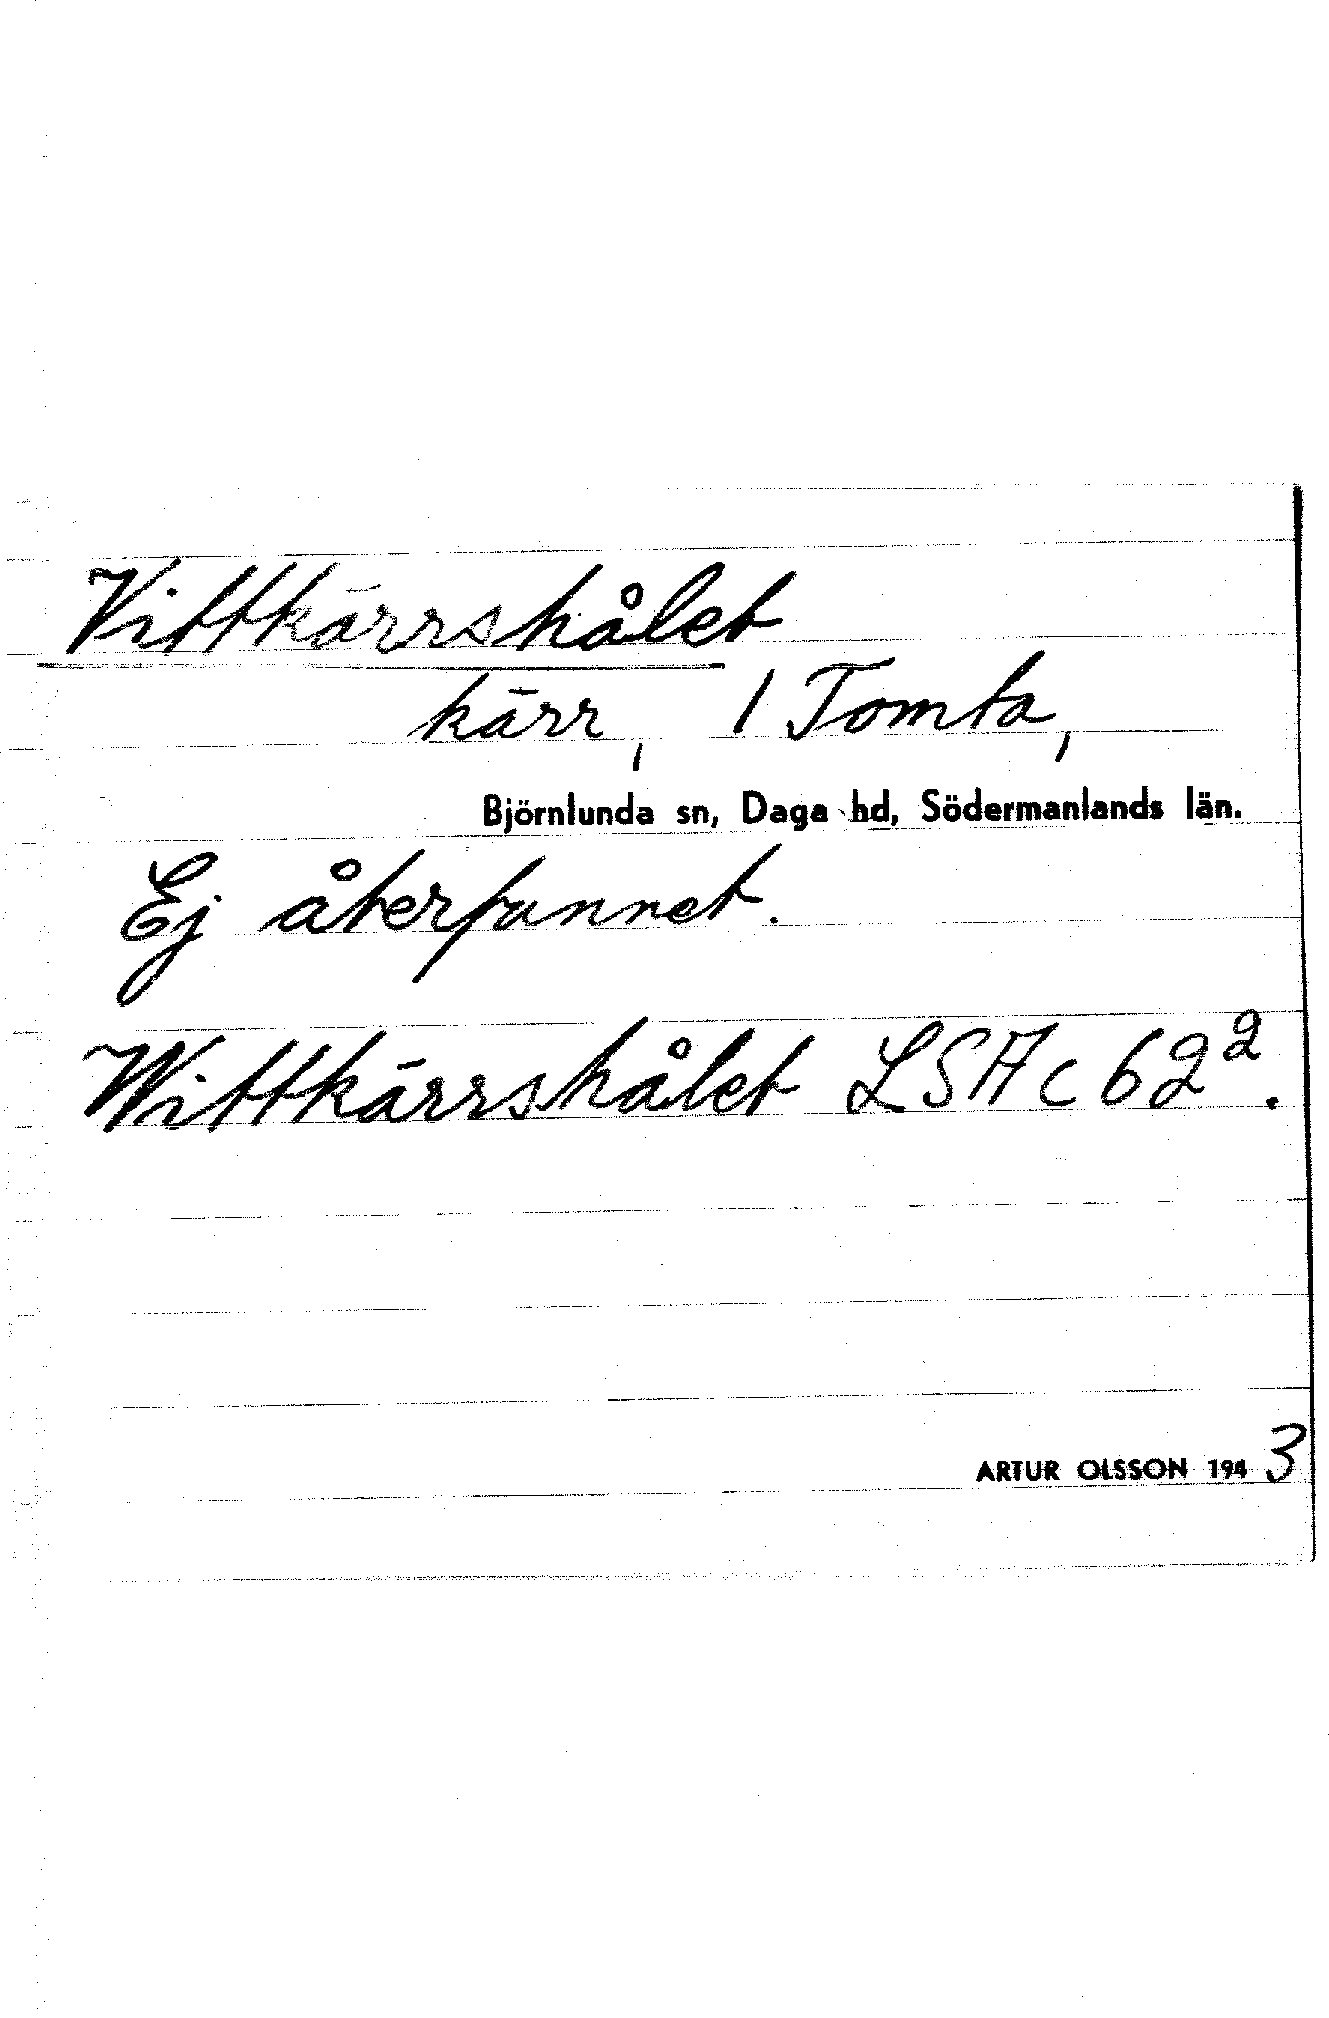 Vittkärrshålet
kärr, 1 Tomta,
Björnlunda sn, Daga hd, Södermanlands län.
Ej återfunnet.
Wittkärrshålet LSA c 62².
ARTUR OLSSON 1943